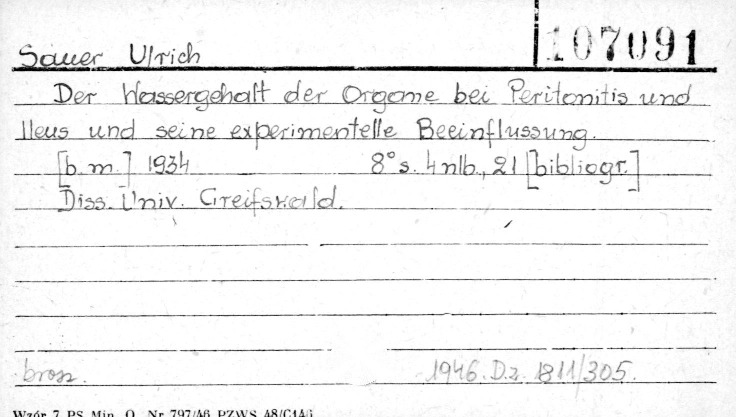 107091
Sauer Ulrich
Der Wassergehalt der Organe bei Peritonitis und
Ileus und seine experimentelle Beeinflussung.
[b.m.] 1934 8° s. 4 nlb., 21 [bibliogr.]
Diss. Univ. Greifswald.
brosz. 1946. Dz. 1811/305.
Wzór 7 PS Min. O. Nr 797/46 PZWS